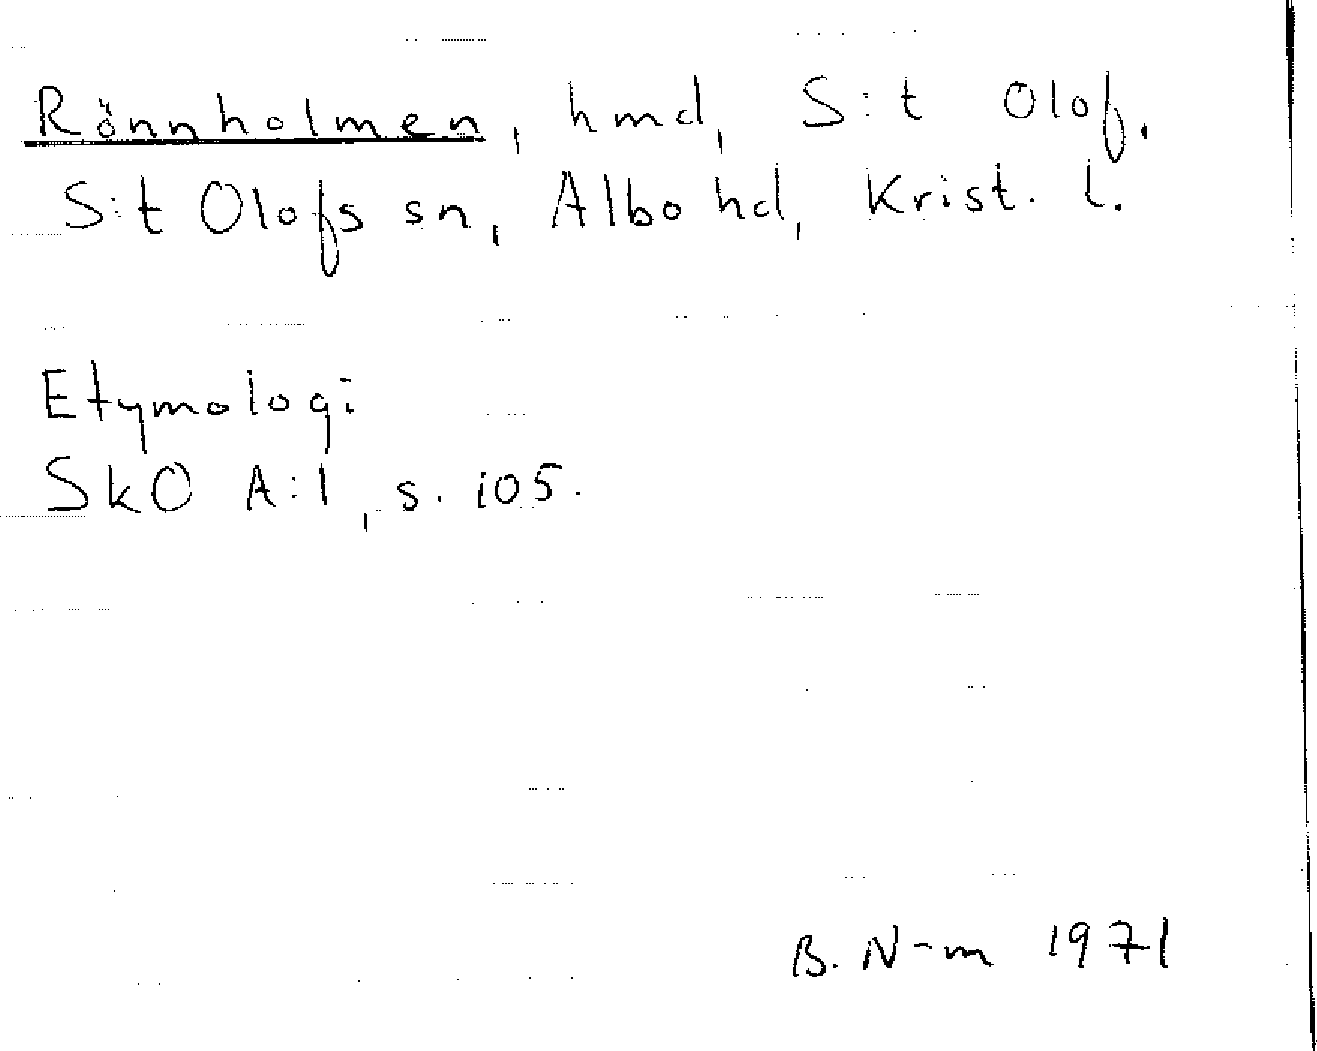 Rönnholmen, hmd, S:t Olof.
S:t Olofs sn, Albo hd, Krist. l.
Etymologi
SkO A:1, s. 105.
B. N-m 1971